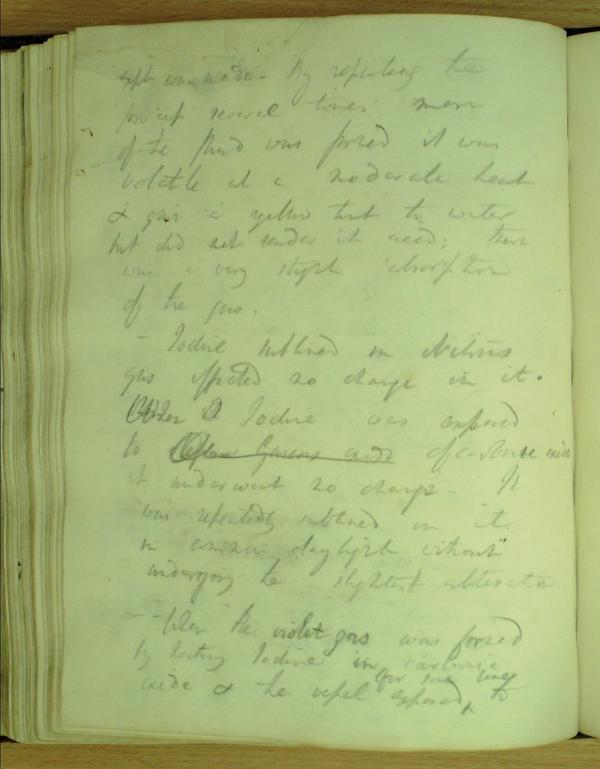 expt was made - By repeating the
process several times more
of the fluid was formed it was
volatile at a moderate heat
& gave a yellow tint to water
but did not render it acid; there
was a very slight absorption
of the gas.
- Iodine sublimed in Nitrous
gas effected no change in it.
When Iodine was exposed
to Gaseous oxide of carbonic oxide
it underwent no change - It
was repeatedly sublimed in it
in common day light without
undergoing the slightest alteration.
- When the violet gas was formed
by heating Iodine in carbonic
for some time
oxide & the vessel exposed to